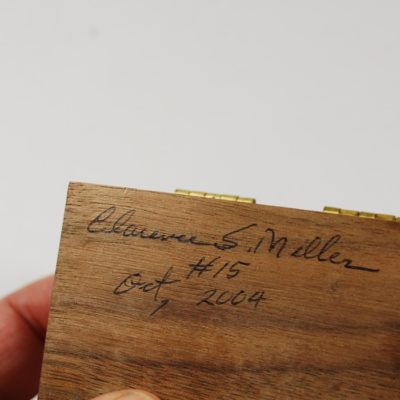 Clarence S. Miller
#15
Oct, 2004